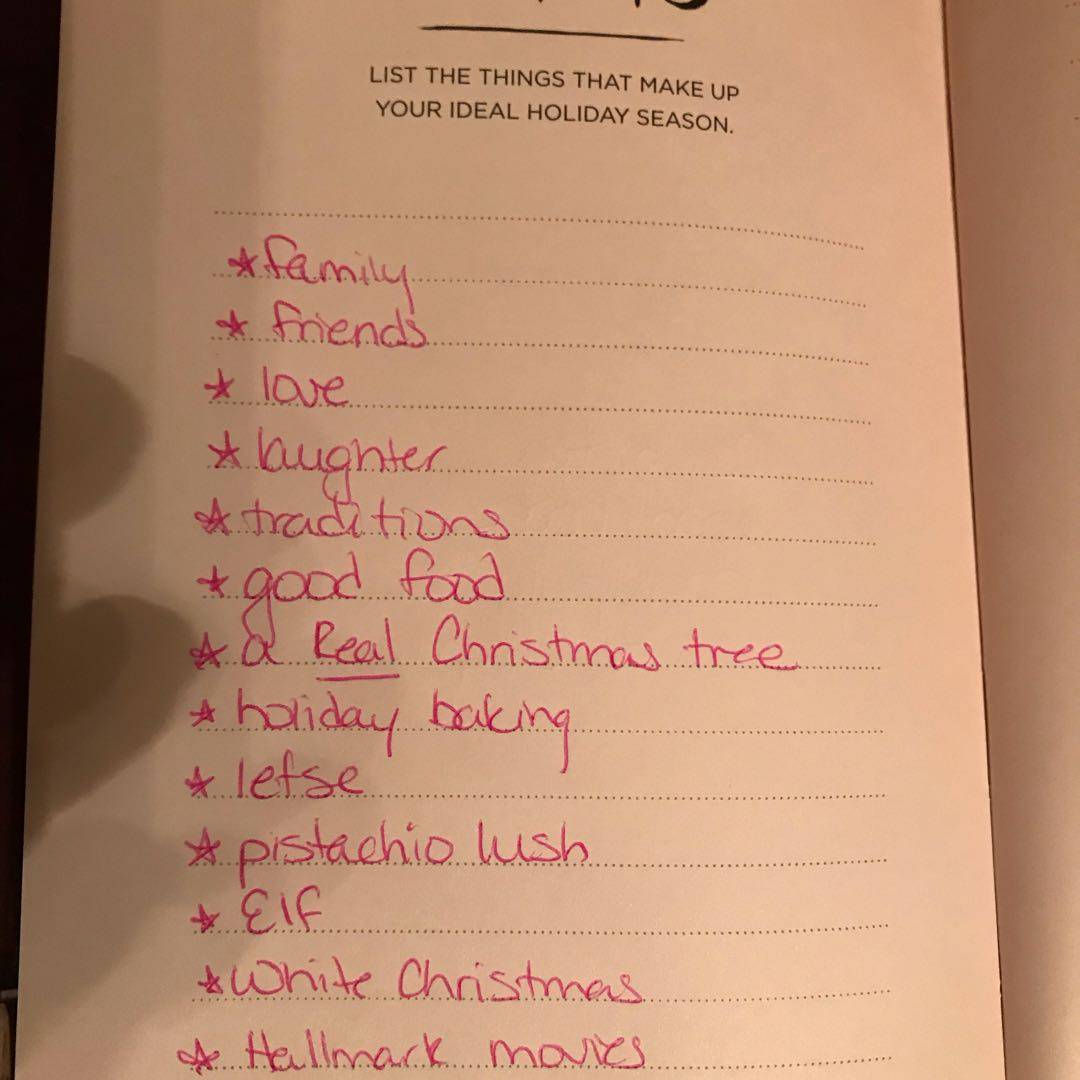 LIST THE THINGS THAT MAKE UP
YOUR IDEAL HOLIDAY SEASON.
★ family
★ friends
★ love
★ laughter
★ traditions
★ good food
★ a Real Christmas tree
★ holiday baking
★ lefse
★ pistachio lush
★ Elf
★ White Christmas
★ Hallmark movies